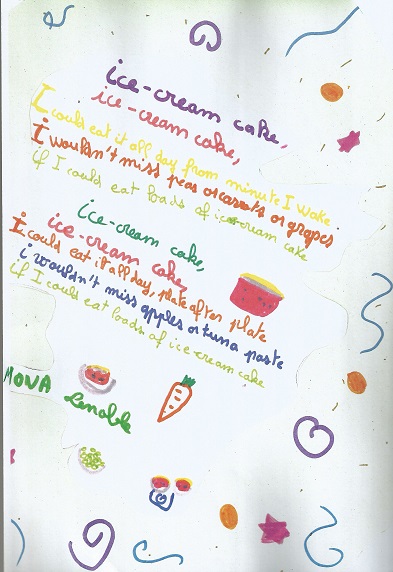 ice-cream cake,
ice-cream cake,
I could eat it all day from minute I wake.
I wouldn't miss peas or carrots or grapes
if I could eat loads of ice-cream cake
ice-cream cake,
ice-cream cake,
I could eat it all day, plate after plate
i wouldn't miss apples or tuna paste
if I could eat loads of ice cream cake
MOVA Lenoble